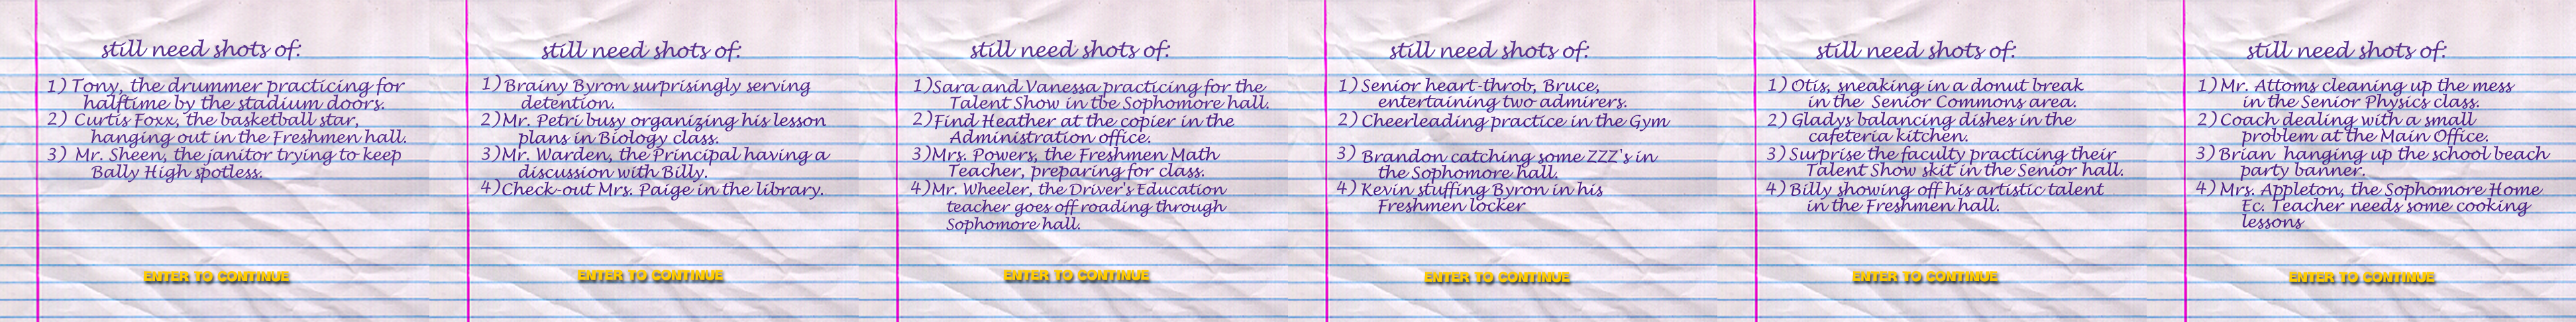 still need shots of:
1) Tony, the drummer practicing for
halftime by the stadium doors.
2) Curtis Foxx, the basketball star,
hanging out in the Freshmen hall.
3) Mr. Sheen, the janitor trying to keep
Bally High spotless.
ENTER TO CONTINUE
still need shots of:
1) Brainy Byron surprisingly serving
detention.
2) Mr. Petri busy organizing his lesson
plans in Biology class.
3) Mr. Warden, the Principal having a
discussion with Billy.
4) Check-out Mrs. Paige in the library.
ENTER TO CONTINUE
still need shots of:
1) Sara and Vanessa practicing for the
Talent Show in the Sophomore hall.
2) Find Heather at the copier in the
Administration office.
3) Mrs. Powers, the Freshmen Math
Teacher, preparing for class.
4) Mr. Wheeler, the Driver's Education
teacher goes off roading through
Sophomore hall.
ENTER TO CONTINUE
still need shots of:
1) Senior heart-throb, Bruce,
entertaining two admirers.
2) Cheerleading practice in the Gym
3) Brandon catching some ZZZ's in
the Sophomore hall.
4) Kevin stuffing Byron in his
Freshmen locker
ENTER TO CONTINUE
still need shots of:
1) Otis, sneaking in a donut break
in the Senior Commons area.
2) Gladys balancing dishes in the
cafeteria kitchen.
3) Surprise the faculty practicing their
Talent Show skit in the Senior hall.
4) Billy showing off his artistic talent
in the Freshmen hall.
ENTER TO CONTINUE
still need shots of:
1) Mr. Attoms cleaning up the mess
in the Senior Physics class.
2) Coach dealing with a small
problem at the Main Office.
3) Brian hanging up the school beach
party banner.
4) Mrs. Appleton, the Sophomore Home
Ec. Teacher needs some cooking
lessons
ENTER TO CONTINUE